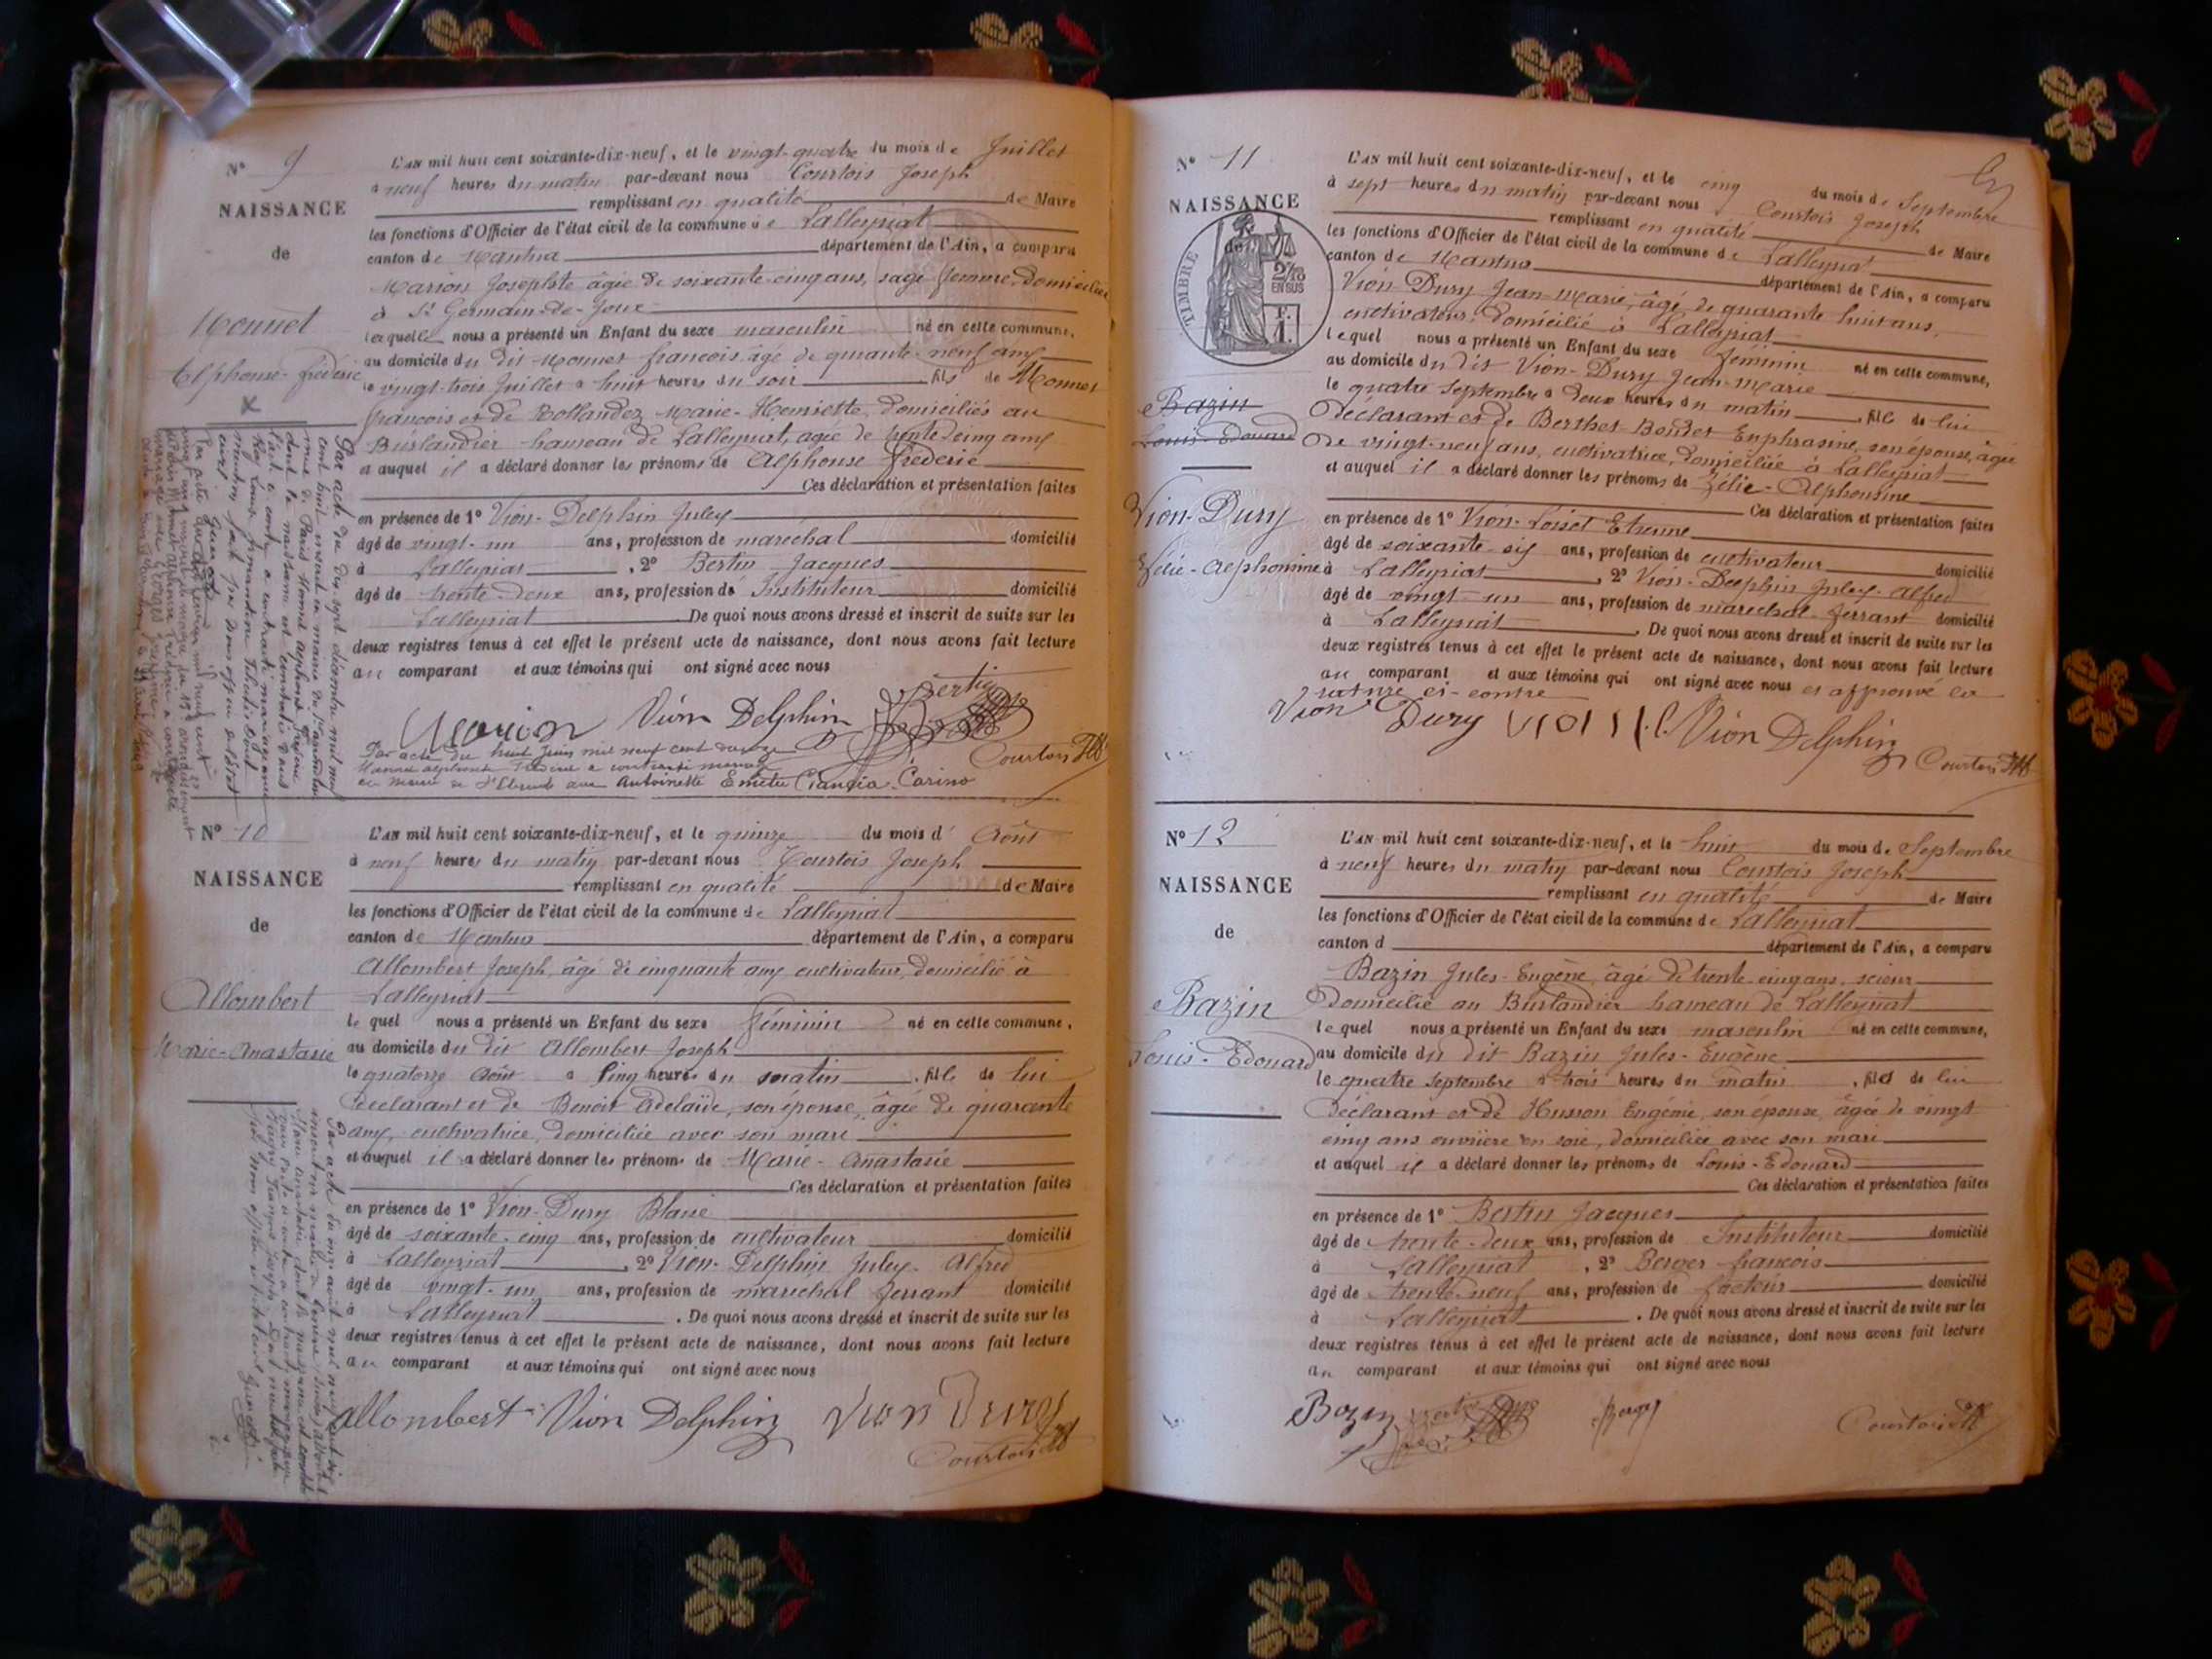 N° 9
NAISSANCE
de
Monnet
Alphonse-frédéric
L'AN mil huit cent soixante-dix-neuf, et le vingt-quatre du mois de Juillet
à neuf heures du matin par-devant nous Courtois Joseph
remplissant en qualité de Maire
les fonctions d'Officier de l'état civil de la commune de Lalleyriat
canton de Nantua département de l'Ain, a comparu
Marion Josephte âgée de soixante-cinq ans, sage femme, domiciliée
à St Germain-de-Joux
laquelle nous a présenté un Enfant du sexe masculin né en cette commune,
au domicile du dit Monnet françois, âgé de quarante-neuf ans
le vingt-trois Juillet à huit heures du soir, fils de Monnet
françois et de Rollandez Marie-Henriette, domiciliés au
Burlandier hameau de Lalleyriat, agée de trente cinq ans
et auquel il a déclaré donner les prénoms de Alphonse frédéric
Ces déclaration et présentation faites
en présence de 1° Vion-Delphin Jules
âgé de vingt-un ans, profession de maréchal domicilié
à Lalleyriat, 2° Bertin Jacques
âgé de trente-deux ans, profession de Instituteur domicilié
Lalleyriat. De quoi nous avons dressé et inscrit de suite sur les
deux registres tenus à cet effet le présent acte de naissance, dont nous avons fait lecture
au comparant et aux témoins qui ont signé avec nous
Bertin
Marion Vion Delphin
Courtois
Par acte du huit Juin mil neuf cent
Monnet alphonse Frédéric a contracté mariage
en mairie de avec Antoinette Claudia Carino
N° 10
NAISSANCE
de
Allombert
Marie-Anastasie
L'AN mil huit cent soixante-dix-neuf, et le quinze du mois d' Août
à neuf heures du matin par-devant nous Courtois Joseph
remplissant en qualité de Maire
les fonctions d'Officier de l'état civil de la commune de Lalleyriat
canton de Nantua département de l'Ain, a comparu
Allombert Joseph, âgé de cinquante ans cultivateur, domicilié à
Lalleyriat
le quel nous a présenté un Enfant du sexe féminin né en cette commune,
au domicile du dit Allombert Joseph
le quatorze Août à cinq heures du matin, fille de lui
déclarant et de Benoit Adelaïde, son épouse, âgée de quarante
ans, cultivatrice, domiciliée avec son mari
et auquel il a déclaré donner les prénoms de Marie-Anastasie
Ces déclaration et présentation faites
en présence de 1° Vion-Dury Blaise
âgé de soixante-cinq ans, profession de cultivateur domicilié
à Lalleyriat, 2° Vion-Delphin Jules-Alfred
âgé de vingt-un ans, profession de maréchal ferrant domicilié
à Lalleyriat. De quoi nous avons dressé et inscrit de suite sur les
deux registres tenus à cet effet le présent acte de naissance, dont nous avons fait lecture
au comparant et aux témoins qui ont signé avec nous
allombert Vion Delphin Vion Dury
Courtois
N° 11
NAISSANCE
de
TIMBRE
2/10
EN SUS
F.
1.
Bazin
Louis-Edouard
Vion-Dury
Zélie-Alphonsine
L'AN mil huit cent soixante-dix-neuf, et le cinq du mois de Septembre
à sept heures du matin par-devant nous Courtois Joseph
remplissant en qualité de Maire
les fonctions d'Officier de l'état civil de la commune de Lalleyriat
canton de Nantua département de l'Ain, a comparu
Vion-Dury Jean-Marie, âgé de quarante huit ans,
cultivateur, domicilié à Lalleyriat
lequel nous a présenté un Enfant du sexe féminin né en cette commune,
au domicile du dit Vion-Dury Jean-Marie
le quatre Septembre à deux heures du matin, fille de lui
déclarant et de Berthet-Bondet Euphrasine, son épouse, âgée
de vingt-neuf ans, cultivatrice, domiciliée à Lalleyriat
et auquel il a déclaré donner les prénoms de Zélie-Alphonsine
Ces déclaration et présentation faites
en présence de 1° Vion-Loisel Etienne
âgé de soixante-six ans, profession de cultivateur domicilié
à Lalleyriat, 2° Vion-Delphin Jules-Alfred
âgé de vingt-un ans, profession de maréchal-ferrant domicilié
à Lalleyriat. De quoi nous avons dressé et inscrit de suite sur les
deux registres tenus à cet effet le présent acte de naissance, dont nous avons fait lecture
au comparant et aux témoins qui ont signé avec nous et approuvé la
rature ci-contre
Vion Dury Vion Delphin
Courtois
N° 12
NAISSANCE
de
Bazin
Louis-Edouard
L'AN mil huit cent soixante-dix-neuf, et le huit du mois de Septembre
à neuf heures du matin par-devant nous Courtois Joseph
remplissant en qualité de Maire
les fonctions d'Officier de l'état civil de la commune de Lalleyriat
canton d département de l'Ain, a comparu
Bazin Jules-Eugène âgé de trente-cinq ans, scieur
domicilié au Burlandier hameau de Lalleyriat
lequel nous a présenté un Enfant du sexe masculin né en cette commune,
au domicile du dit Bazin Jules-Eugène
le quatre Septembre à trois heures du matin, fils de lui
déclarant et de Husson Eugénie, son épouse, âgée de vingt
cinq ans ouvrière en soie, domiciliée avec son mari
et auquel il a déclaré donner les prénoms de Louis-Edouard
Ces déclaration et présentation faites
en présence de 1° Bertin Jacques
âgé de trente-deux ans, profession de Instituteur domicilié
à Lalleyriat, 2° Berger françois
âgé de trente-neuf ans, profession de facteur domicilié
à Lalleyriat. De quoi nous avons dressé et inscrit de suite sur les
deux registres tenus à cet effet le présent acte de naissance, dont nous avons fait lecture
au comparant et aux témoins qui ont signé avec nous
Bazin Bertin Berger
Courtois